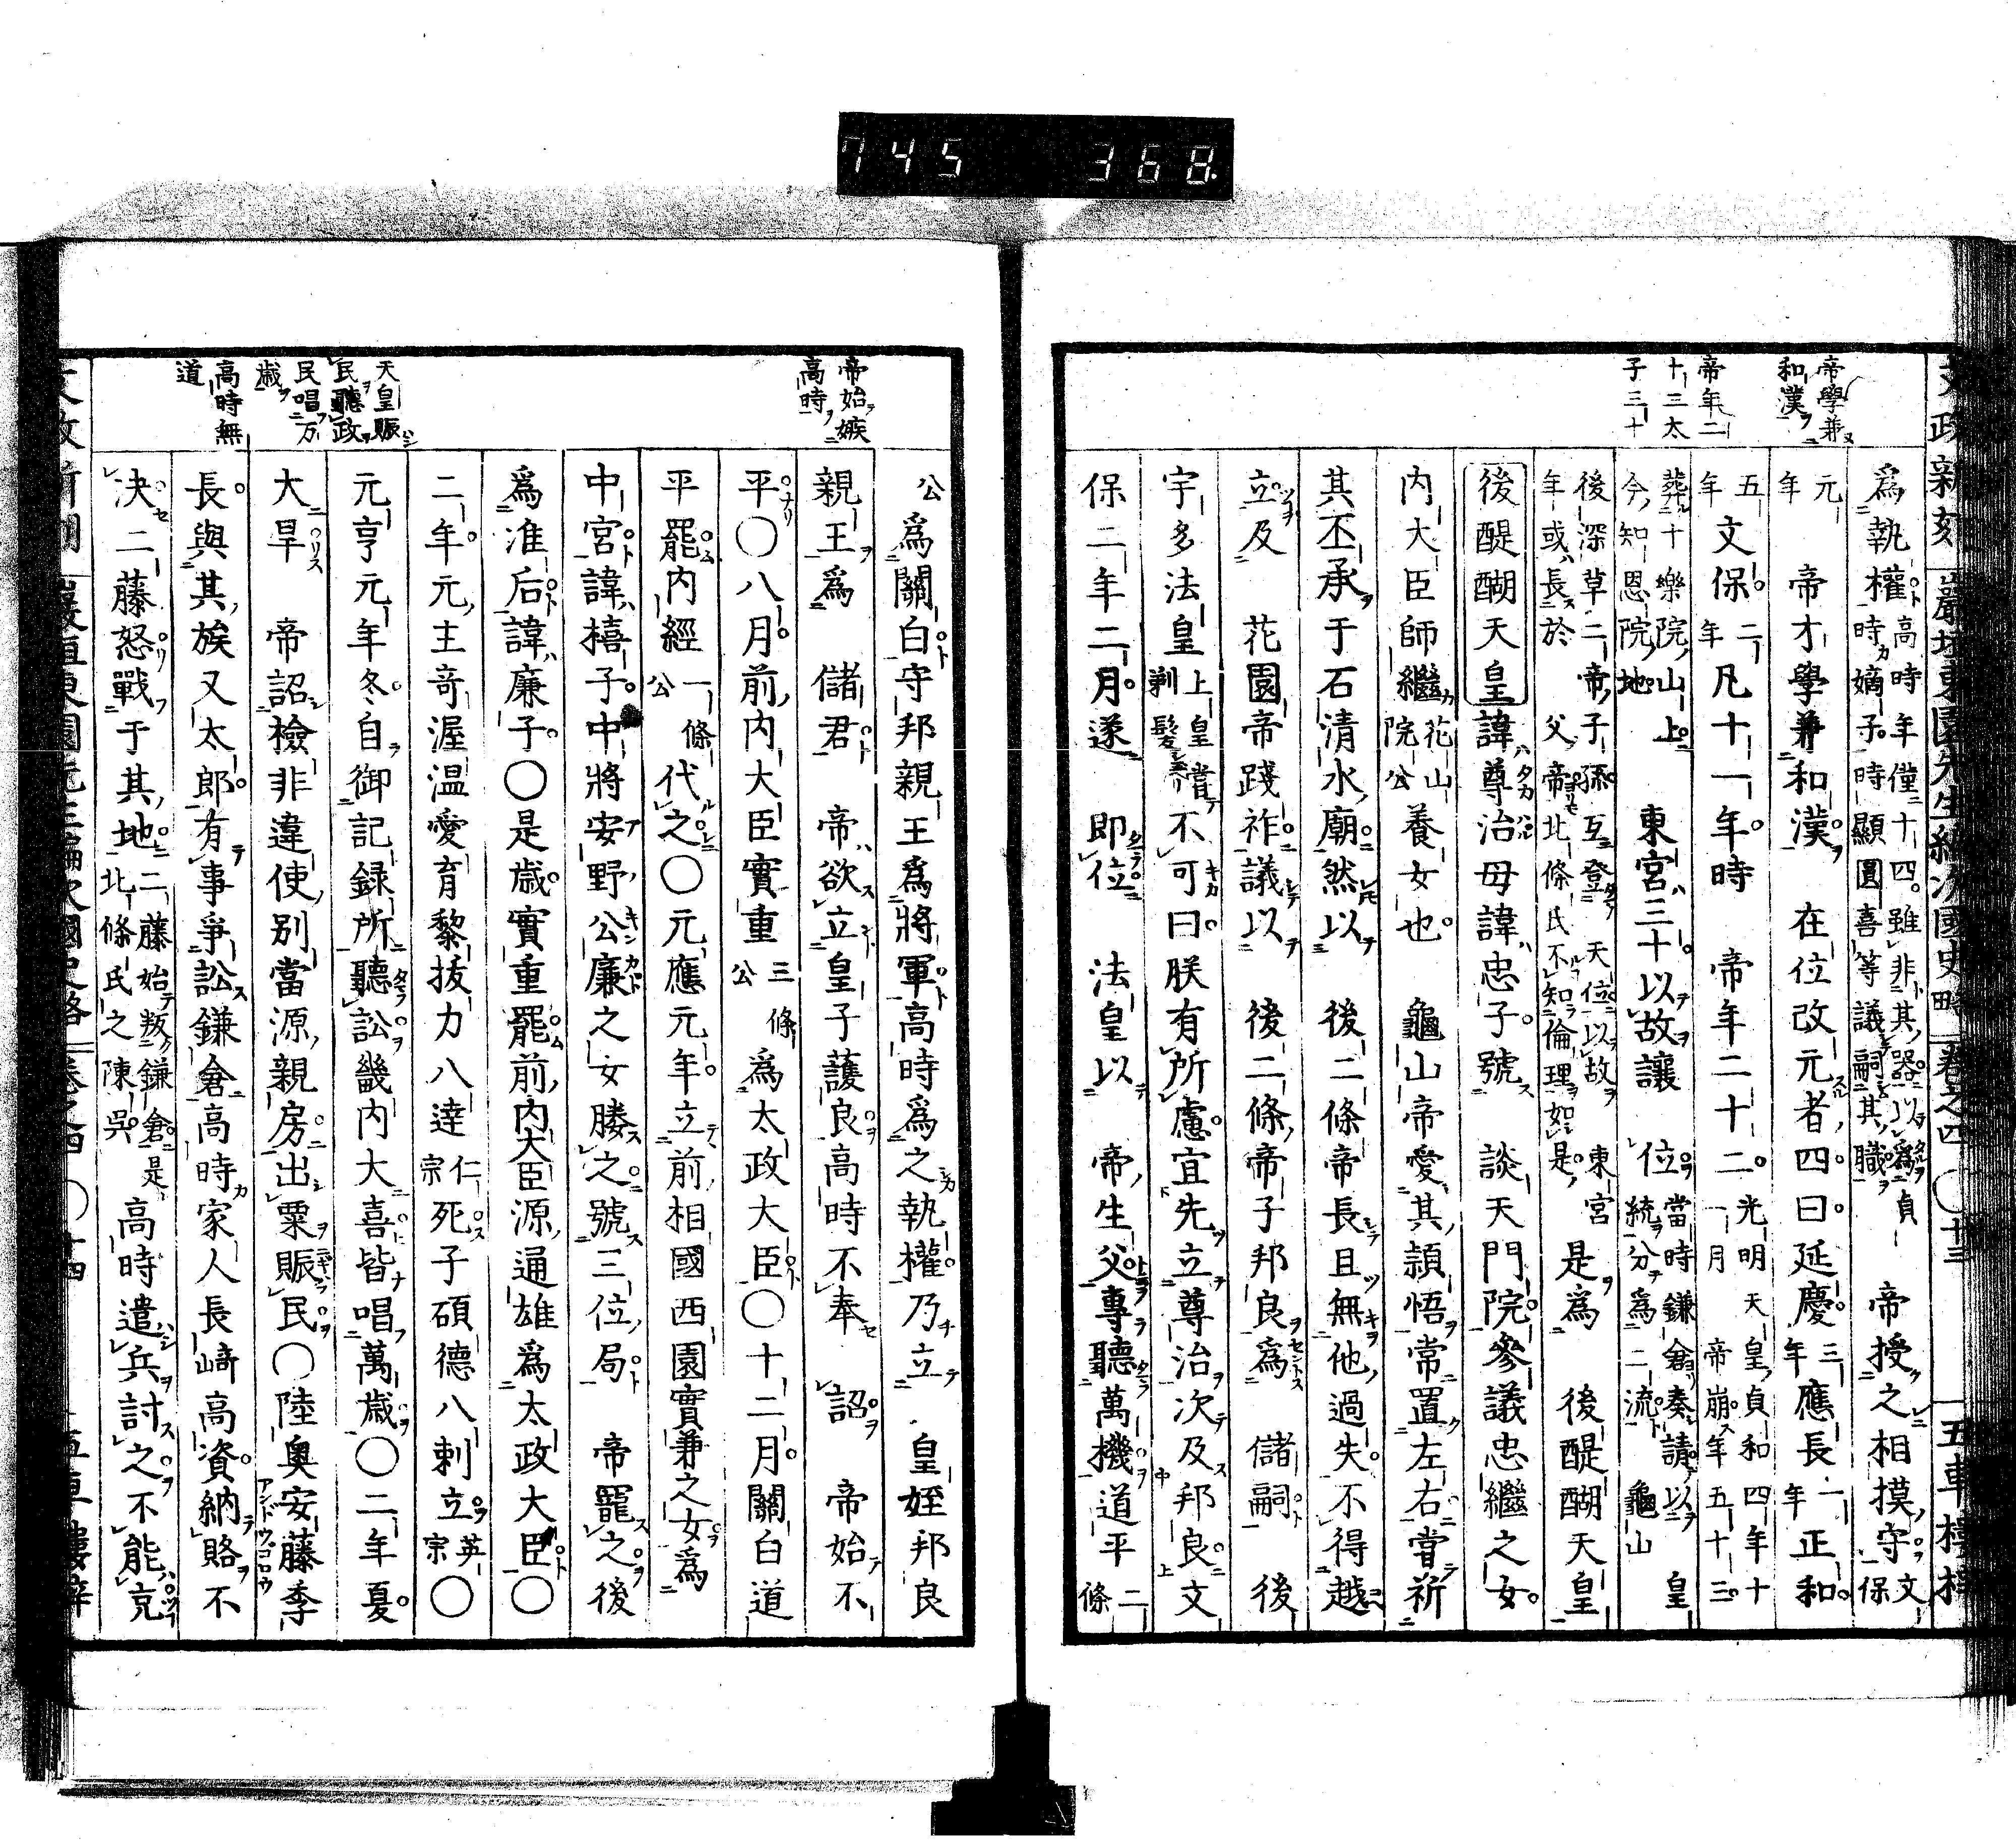 745 368.
文政新刻 巖垣東園先生編次國史略 卷之四 〇十三 五車樓梓
帝學兼
和漢
帝年二
十三太
子三十
爲執權高時年僅十四雖非其器以爲貞
時嫡子時顯圓喜等議嗣其職帝授之相摸守文保
元年 帝才學兼和漢 在位改元者四曰延慶三年應長一年正和
五年文保二年凡十一年時 帝年二十二光明天皇貞和四年十一月帝崩年五十三
葬十樂院山上今知恩院地 東宮三十以故讓 位當時鎌倉奏請以皇統分爲二流龜山
後深草二帝子孫互登天位以故東宮年或長於父帝北條氏不知倫理如是 是爲 後醍醐天皇
後醍醐天皇諱尊治母諱忠子號 談天門院參議忠繼之女
内大臣師繼花山院公養女也 龜山帝愛其頴悟常置左右嘗祈
其丕承于石清水廟然以 後二條帝長且無他過失不得越
立及 花園帝踐祚議以 後二條帝子邦良爲 儲嗣 後
宇多法皇上皇嘗剃髮不可曰朕有所慮宜先立尊治次及邦良文
保二年二月遂 即位 法皇以 帝生父專聽萬機道平二條
公爲關白守邦親王爲將軍高時爲之執權乃立 皇姪邦良
親王爲 儲君 帝欲立皇子護良高時不奉 詔 帝始不
平〇八月前内大臣實重三條公爲太政大臣〇十二月關白道
平罷内經一條公代之〇元應元年立前相國西園實兼之女爲
中宮諱禧子中將安野公廉之女媵之號三位局 帝寵之後
爲准后諱廉子〇是歲實重罷前内大臣源通雄爲太政大臣〇
二年元主奇渥温愛育黎拔力八達仁宗死子碩德八剌立英宗〇
元亨元年冬自御記録所聽訟畿内大喜皆唱萬歲〇二年夏
大旱 帝詔檢非違使別當源親房出粟賑民〇陸奧安藤季
長與其族又太郎有事爭訟鎌倉高時家人長﨑高資納賂不
決二藤怒戰于其地二藤始叛鎌倉是北條氏之陳吳 高時遣兵討之不能克
帝始嫉
高時
天皇賑
民聽政
民唱万
歲
高時無
道